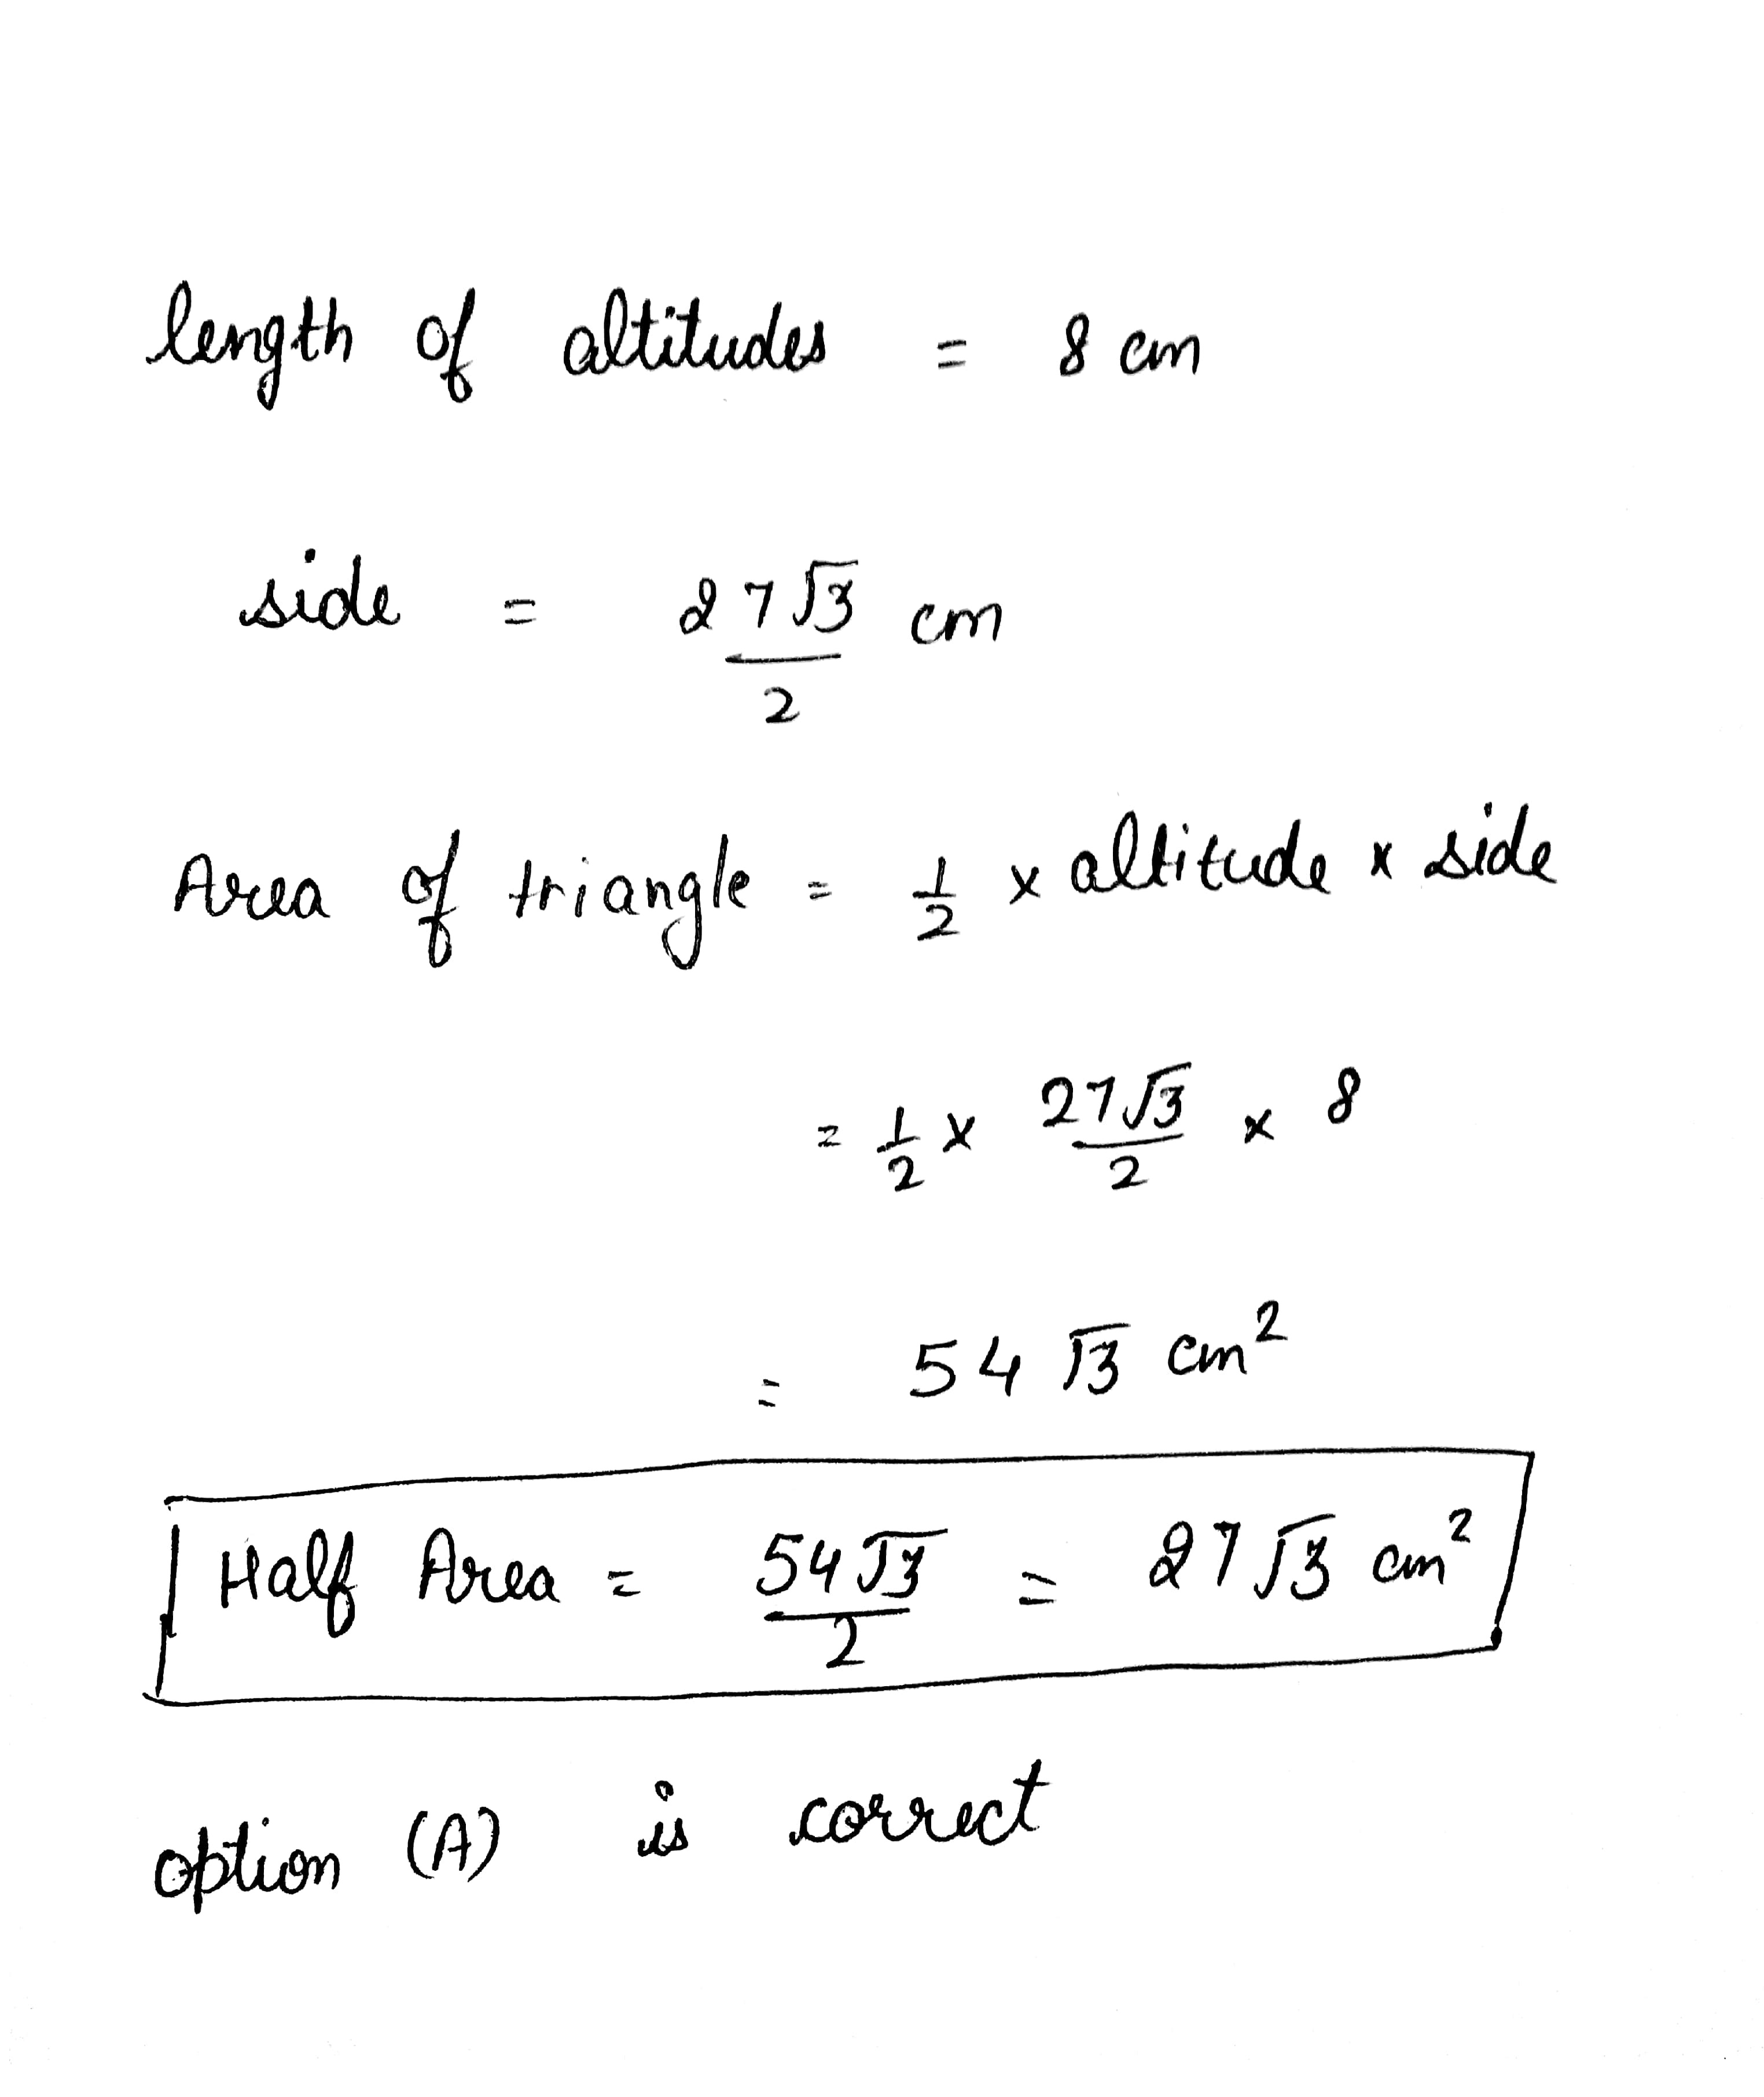 length of altitudes = 8 cm
side = 27√3/2 cm
Area of triangle = 1/2 × altitude × side
= 1/2 × 27√3/2 × 8
= 54 √3 cm²
Half Area = 54√3/2 = 27√3 cm²
option (A) is correct